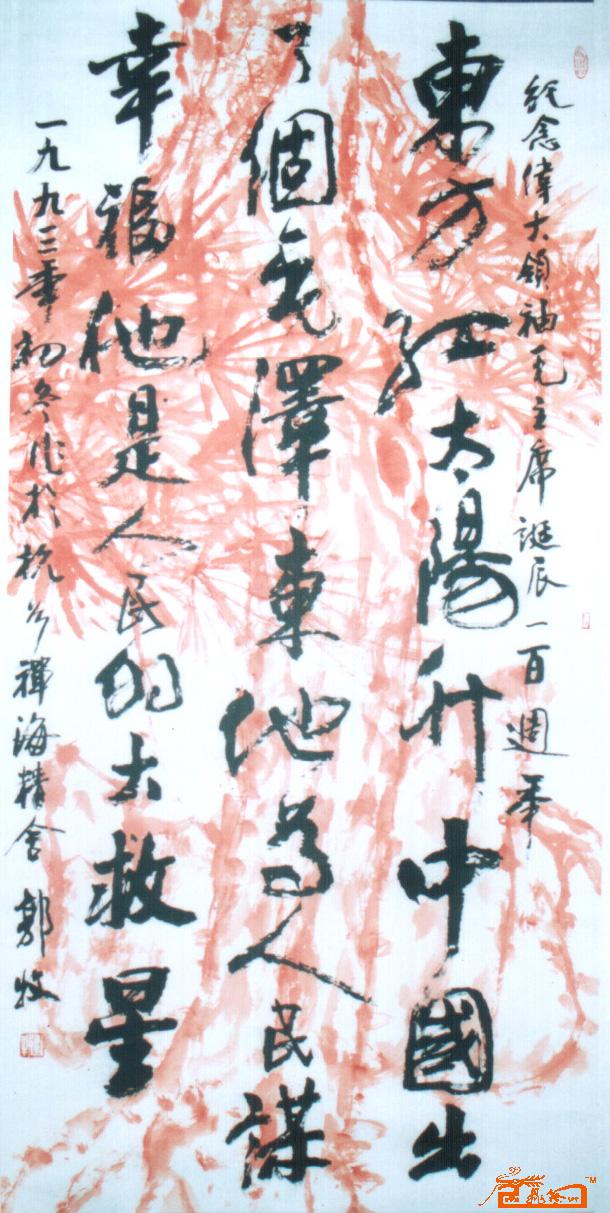 紀念偉大領袖毛主席誕辰一百週年
東方红太陽升中國出
了個毛澤東他為人民謀
幸福他是人民的大救星
一九九三年初冬作於杭州禪海精舍 郭牧